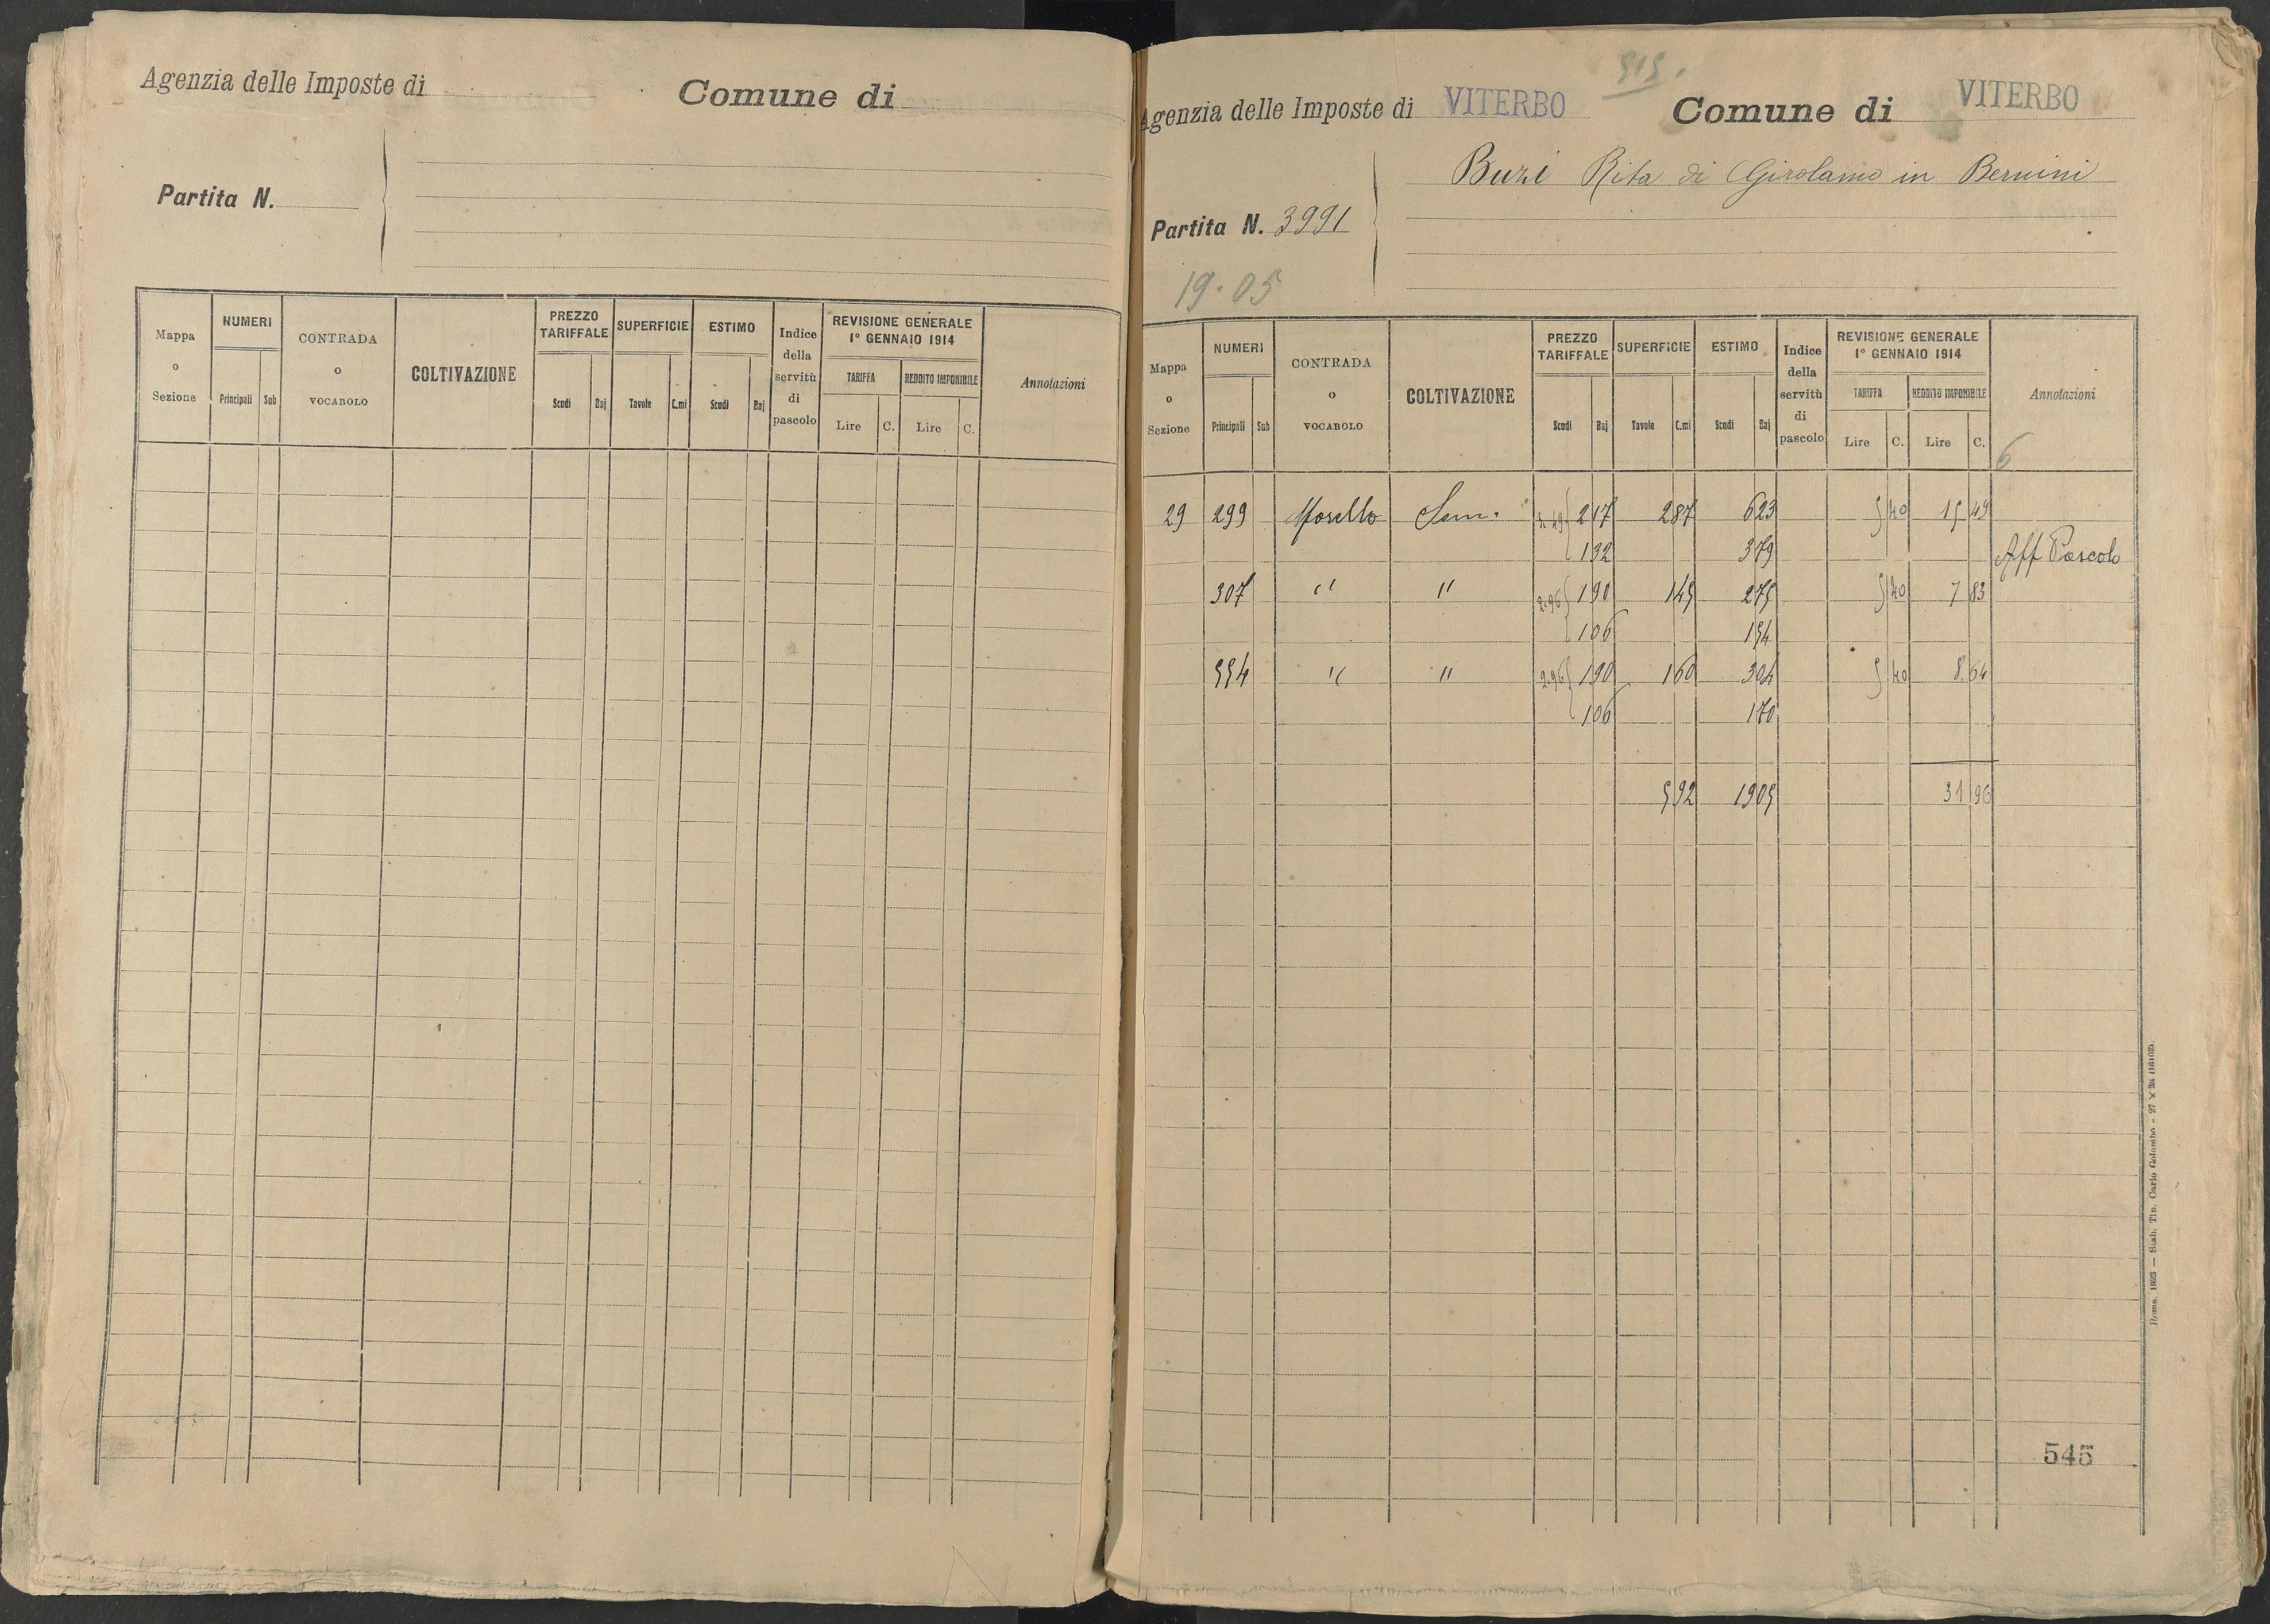 Agenzia delle Imposte di
Comune di
Partita N.
Mappa o Sezione
NUMERI
Principali Sub
CONTRADA o VOCABOLO
COLTIVAZIONE
PREZZO TARIFFALE
Scudi Baj
SUPERFICIE
Tavole C.mi
ESTIMO
Scudi Baj
Indice della servitù di pascolo
REVISIONE GENERALE
1º GENNAIO 1914
TARIFFA
Lire C.
REDDITO IMPONIBILE
Lire C.
Annotazioni
515.
Agenzia delle Imposte di VITERBO
Comune di VITERBO
Buzi Rita di Girolamo in Bernini
Partita N. 3991
19.05
Mappa o Sezione
NUMERI
Principali Sub
CONTRADA o VOCABOLO
COLTIVAZIONE
PREZZO TARIFFALE
Scudi Baj
SUPERFICIE
Tavole C.mi
ESTIMO
Scudi Baj
Indice della servitù di pascolo
REVISIONE GENERALE
1º GENNAIO 1914
TARIFFA
Lire C.
REDDITO IMPONIBILE
Lire C.
Annotazioni
6
29 299 Sem. 3.49 217 287 623 5 40 15 49
132 379 Aff Pascolo
307 " " 2.96 190 145 275 5 40 7 83
106 154
554 " " 2.96 190 160 304 5 40 8 64
106 170
592 1905 31 96
545
Roma, 1923 — Stab. Tip. Carlo Colombo -